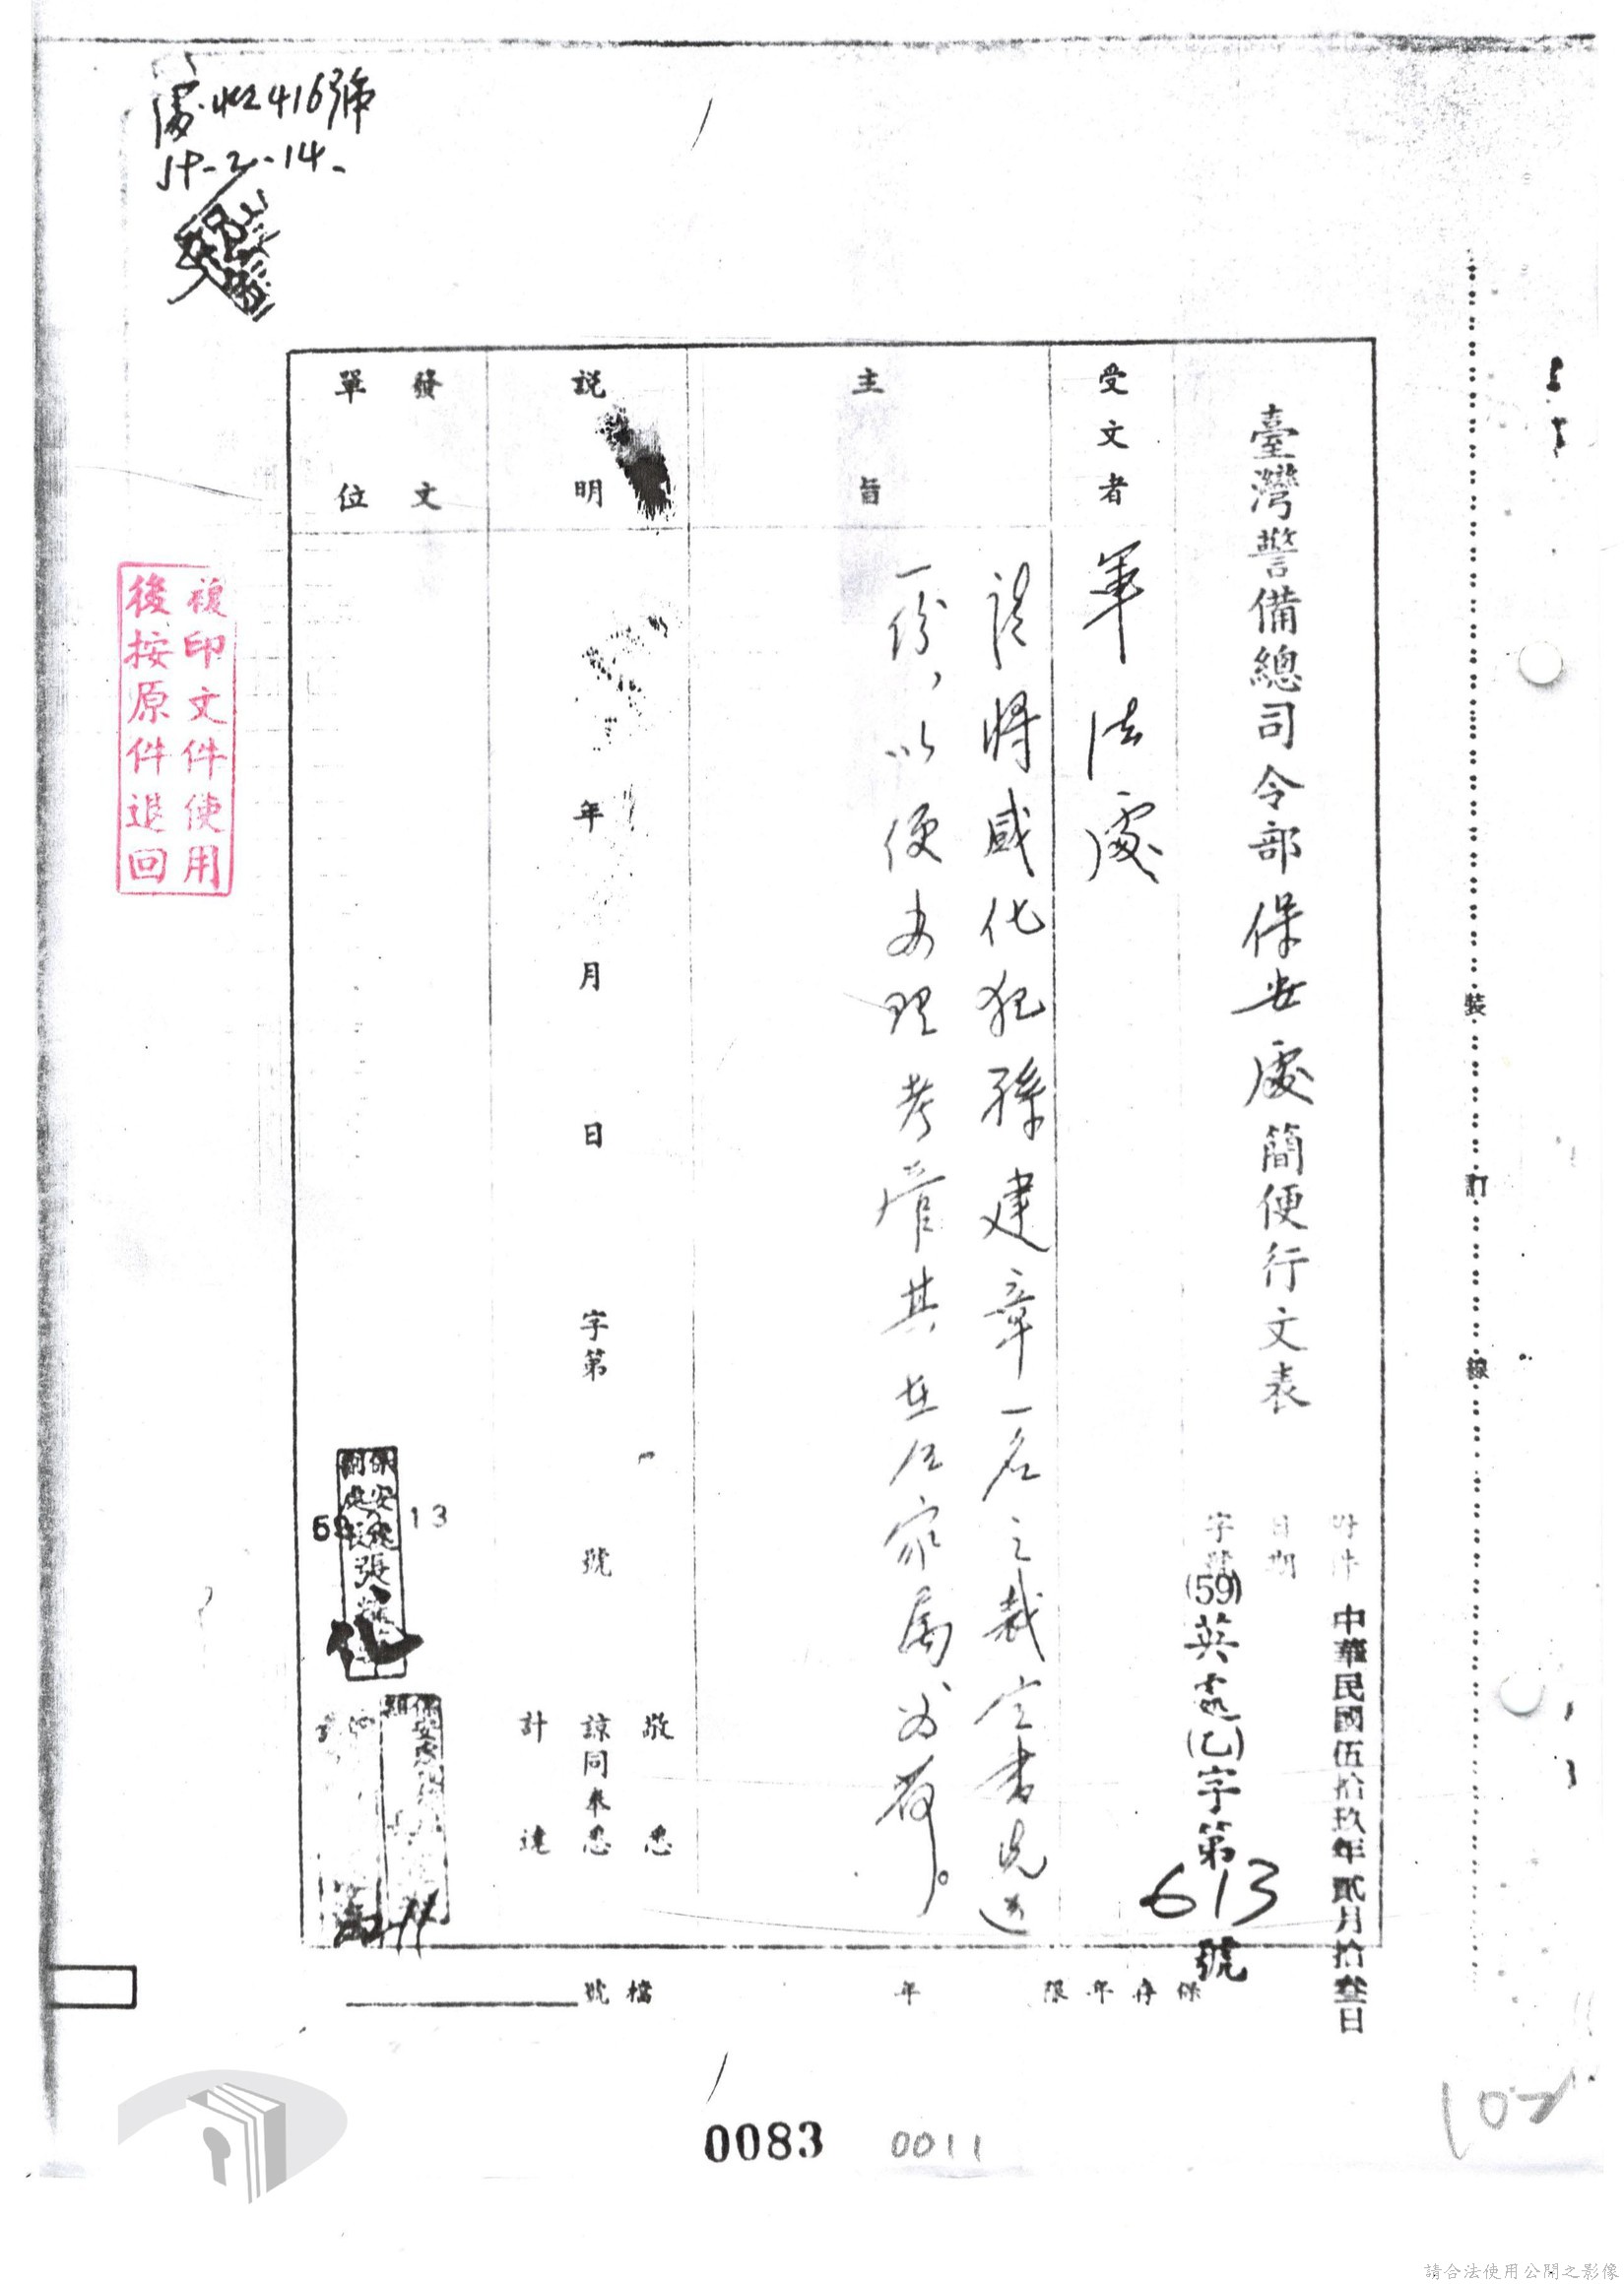 臺灣警備總司令部保安處簡便行文表
附件
日期
中華民國伍拾玖年貳月拾叁日
字號
(59)英處(乙)字第613號
受文者
軍法處
主旨
請將感化犯孫建章一名之裁定書兄送
一份,以便办理考管其在台家屬为荷。
說明
年 月 日 字第 號
敬悉
諒同奉悉
計達
發文
單位
13
保安處
副處長張
保安處
保存年限 年
檔號
416號
59-2-14-
複印文件使用
後按原件退回
裝
訂
線
0083
0011
102
請合法使用公開之影像